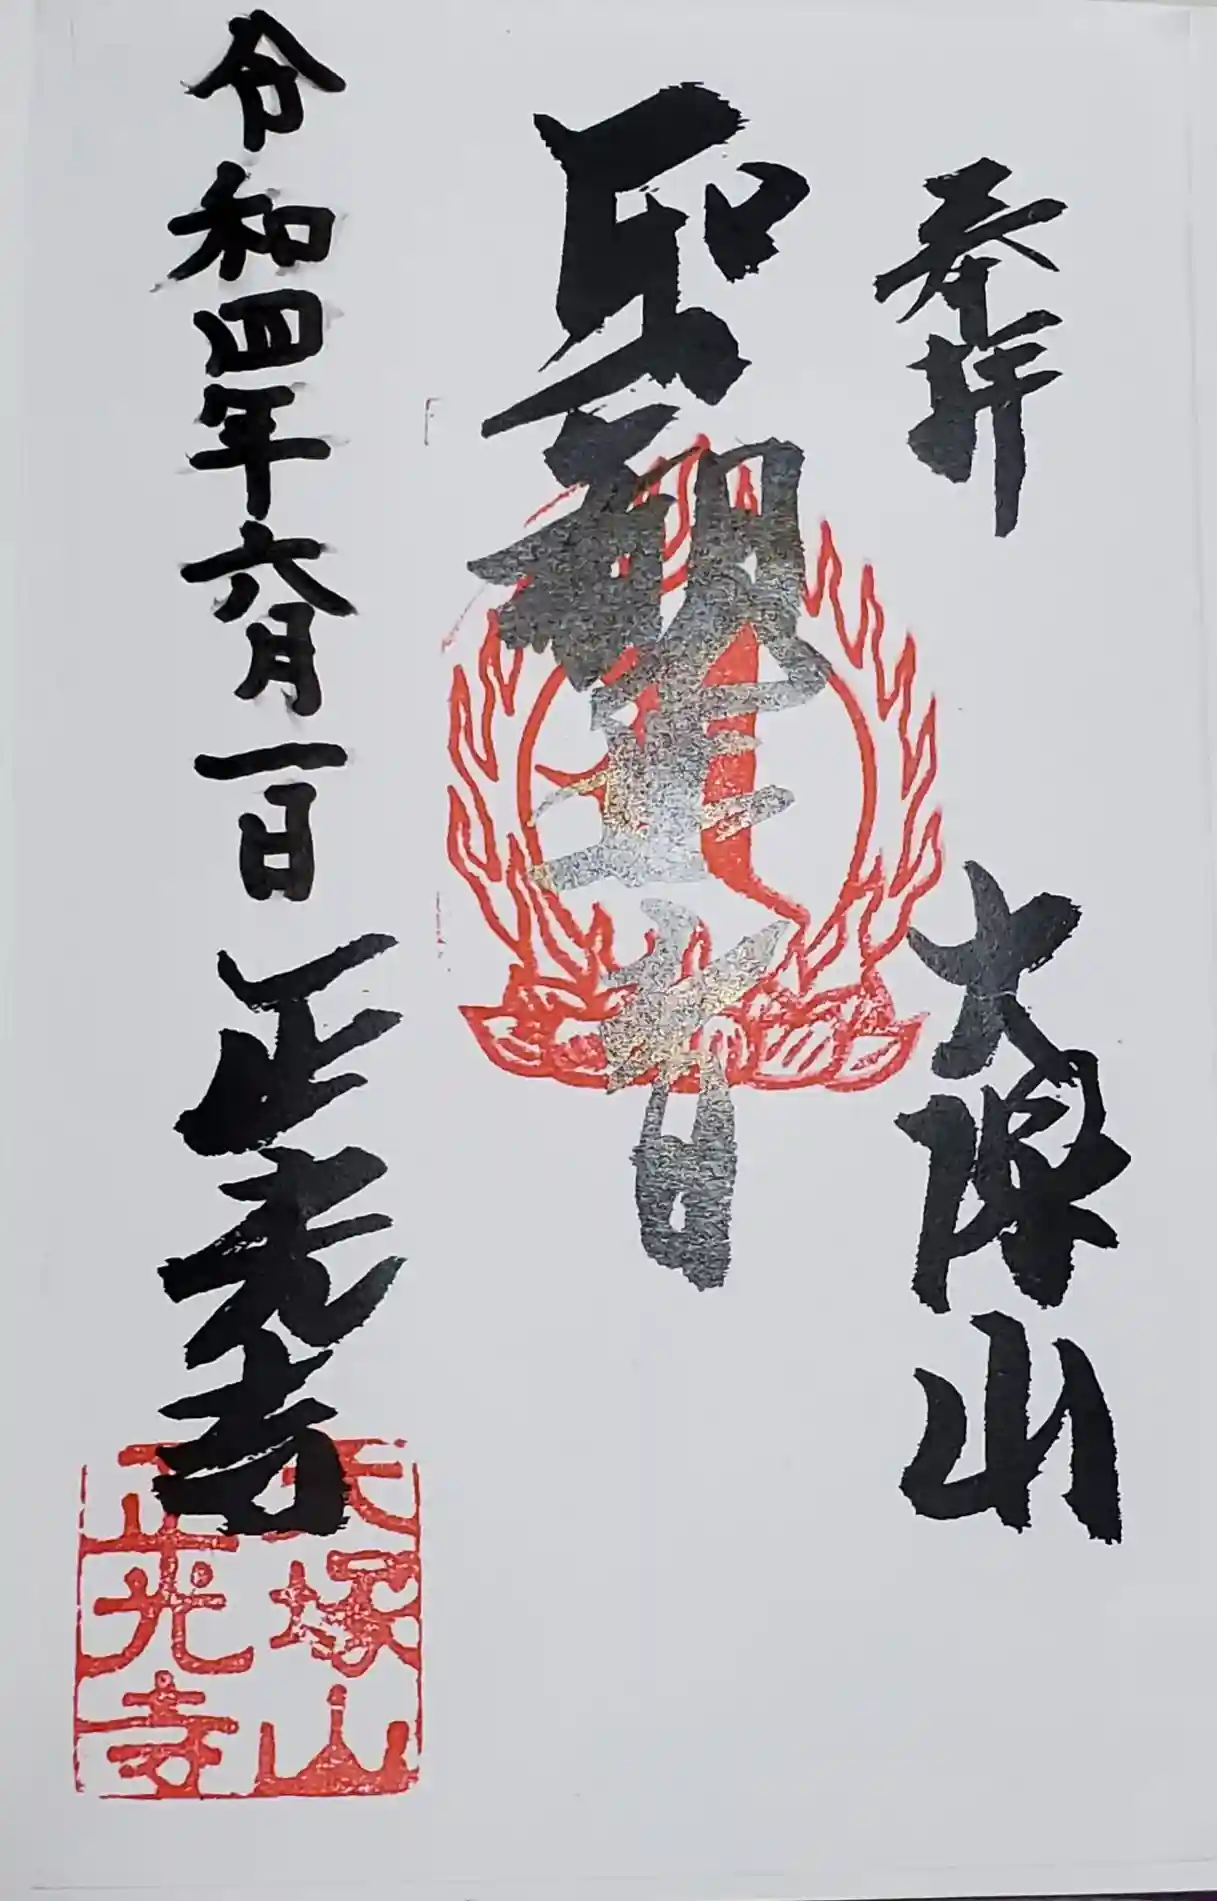 奉拝
大塚山
聖観世音
令和四年六月一日
正光寺
大塚山
正光寺